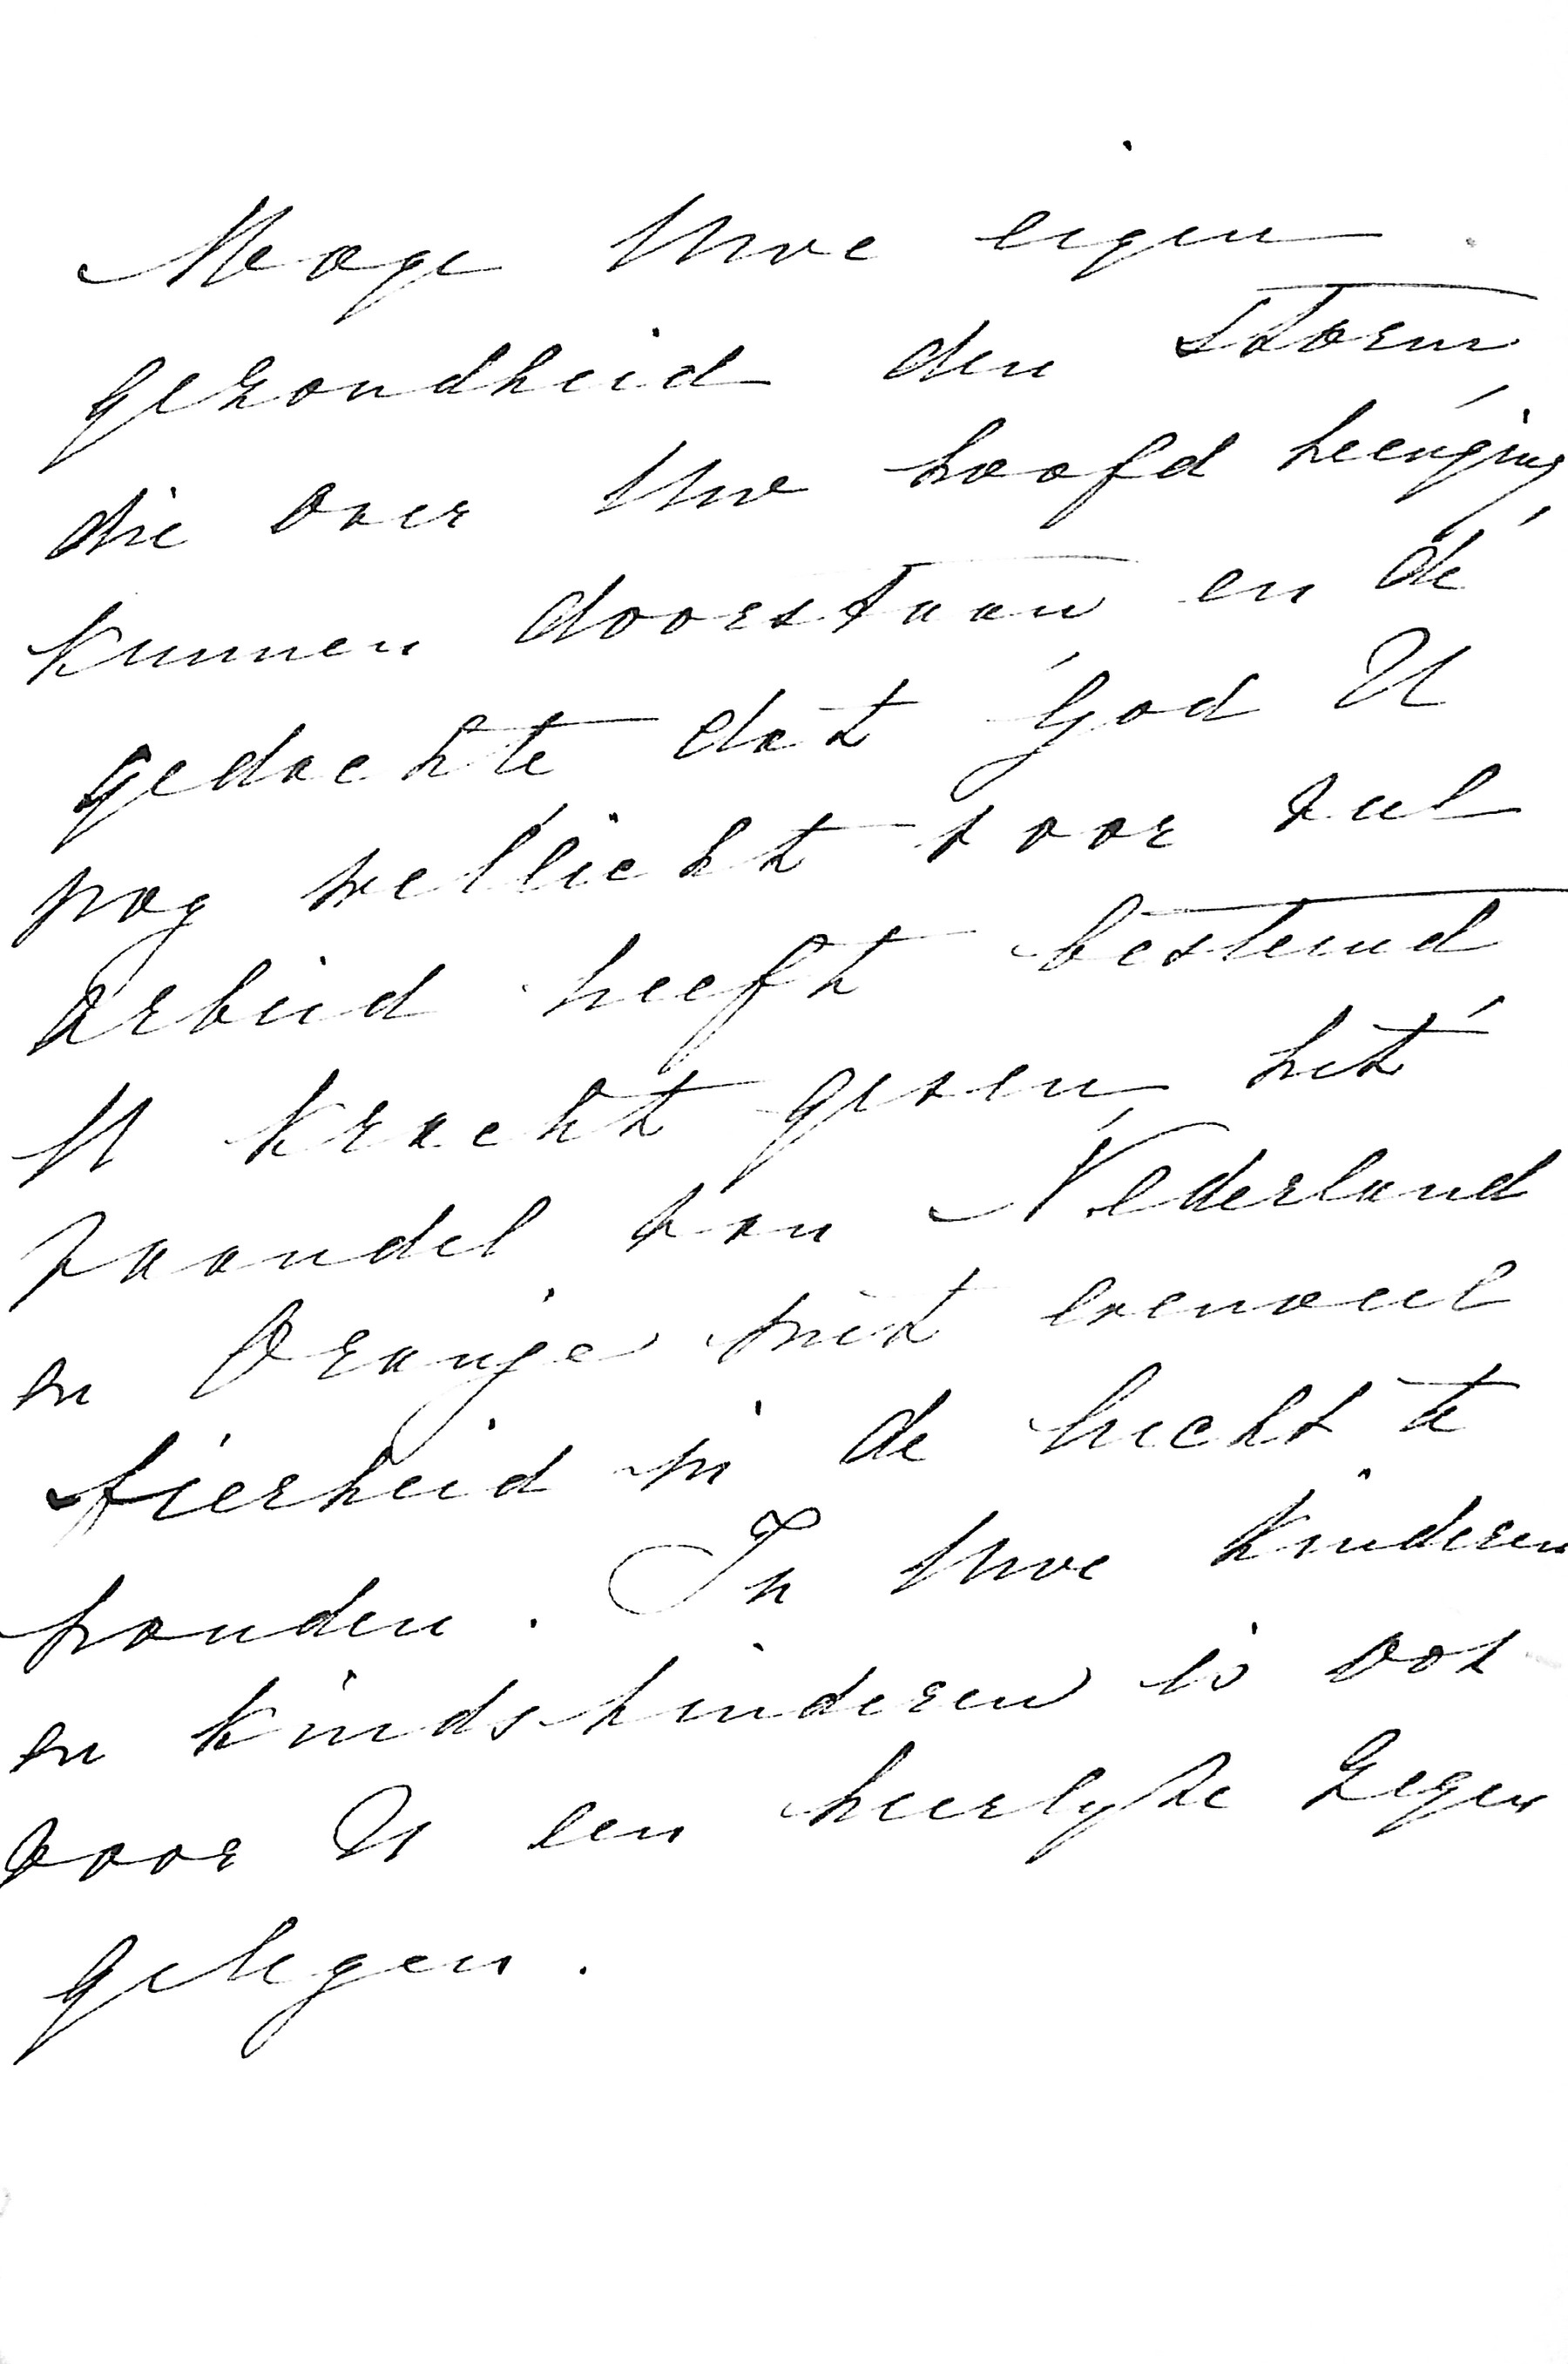 Moge Uwe eigen
gezondheid den storm
die over Uw hoofd heenging,
kunnen doorstaan en de
gedachte dat God U
nog wellicht voor veel
arbeid heeft bestemd
U kracht geven het
vaandel van Nederland
en Oranje met evenveel
fierheid in de hecht te
houden. In Uwe kinderen
en kindskinderen is ook
voor U een heerlyke zegen
gelegen.